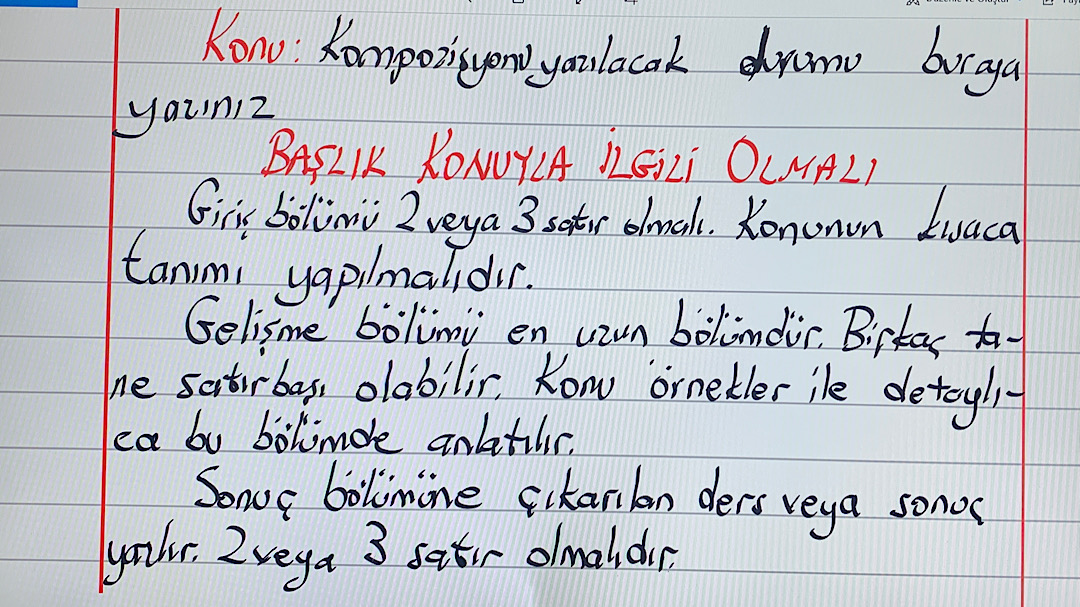 Konu: Kompozisyonu yazılacak durumu buraya
yazınız
BAŞLIK KONUYLA İLGİLİ OLMALI
Giriş bölümü 2 veya 3 satır olmalı. Konunun kısaca
tanımı yapılmalıdır.
Gelişme bölümü en uzun bölümdür. Birkaç ta-
ne satırbaşı olabilir. Konu örnekler ile detaylı-
ca bu bölümde anlatılır.
Sonuç bölümüne çıkarılan ders veya sonuç
yazılır. 2 veya 3 satır olmalıdır.